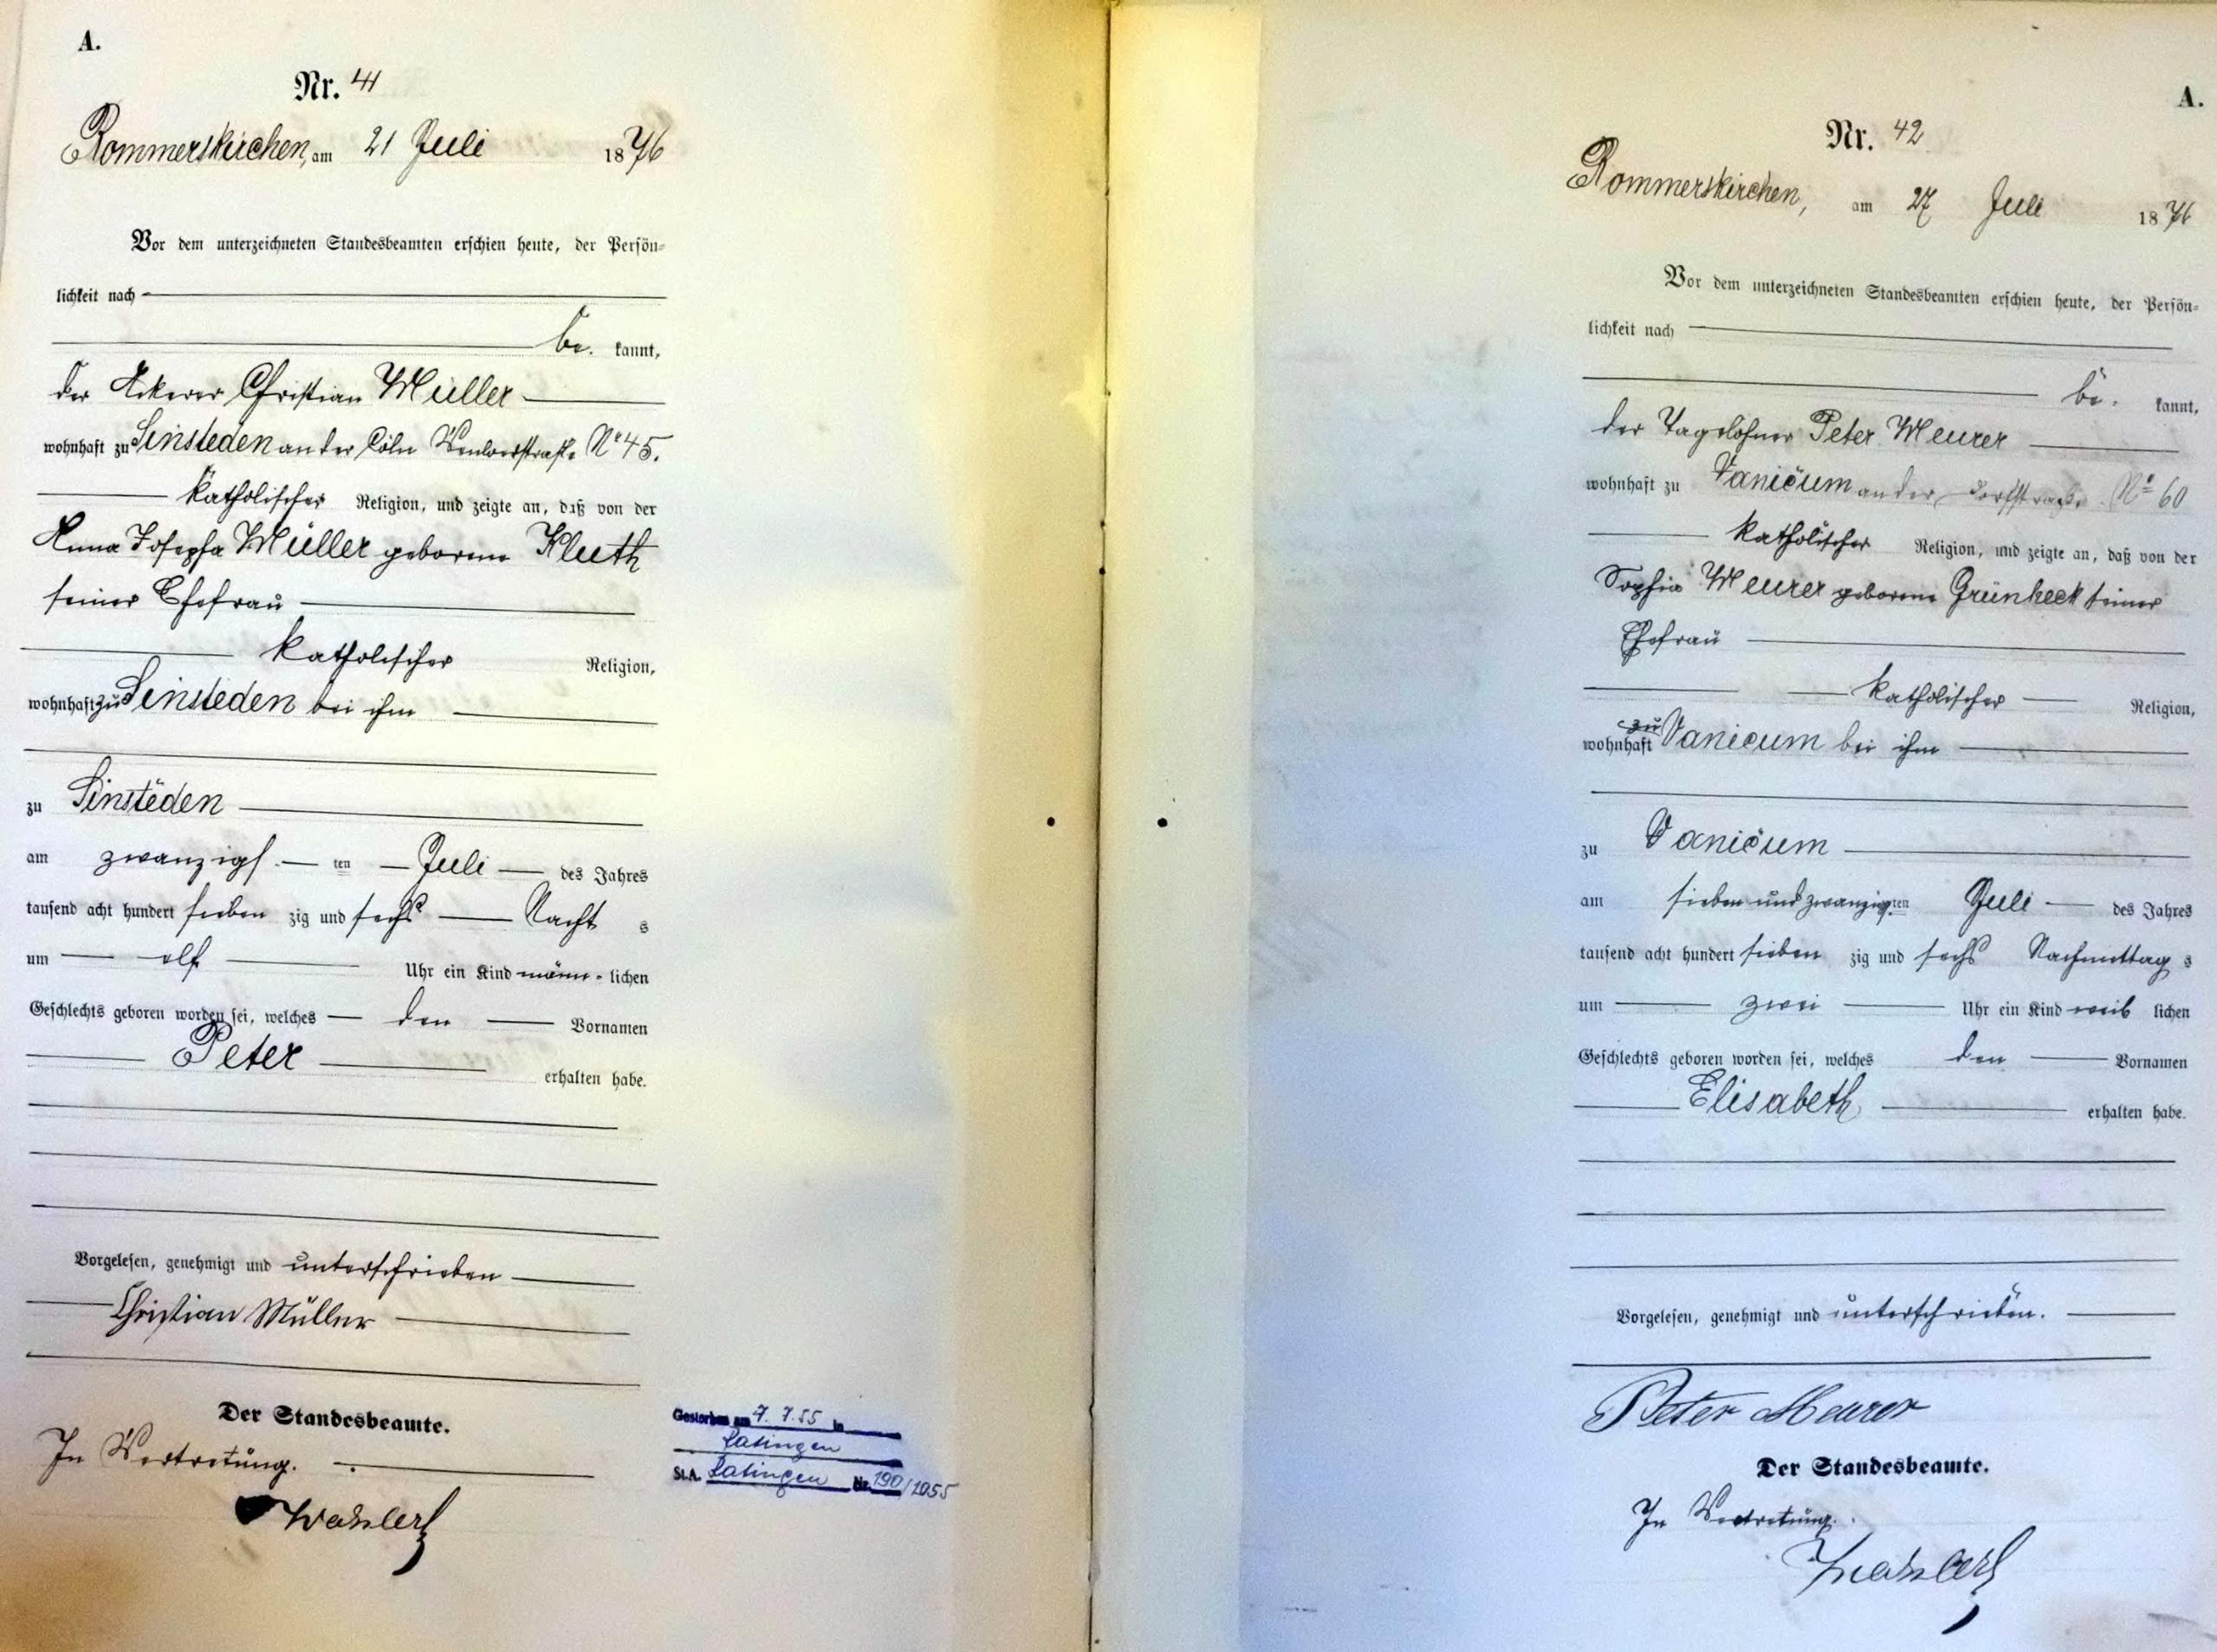 A.
Nr. 41
Rommerskirchen, am 21 Juli 1876
Vor dem unterzeichneten Standesbeamten erschien heute, der Persön-
lichkeit nach
be. kannt,
der Ackerer Christian Müller
wohnhaft zu Sinsteden an der Cöln Venloerstraße No 45.
katholischer Religion, und zeigte an, daß von der
Anna Josepha Müller geborene Kluth
seiner Ehefrau
katholischer Religion,
wohnhaft zu Sinsteden bei ihm
zu Sinsteden
am zwanzigs ten Juli des Jahres
tausend acht hundert sieben zig und sechs Nacht s
um elf Uhr ein Kind männ- lichen
Geschlechts geboren worden sei, welches den Vornamen
Peter erhalten habe.
Vorgelesen, genehmigt und unterschrieben
Christian Müller
Der Standesbeamte.
In Vertretung.
Gestorben am 7. 7. 55 in
St.A. Nr. 190/1955
A.
Nr. 42
Rommerskirchen, am 27 Juli 1876
Vor dem unterzeichneten Standesbeamten erschien heute, der Persön-
lichkeit nach
be. kannt,
der Tagelöhner Peter Meurer
wohnhaft zu Vanicum an der Dorfstraße No 60
katholischer Religion, und zeigte an, daß von der
Sophia Meurer geborene Grünheck seiner
Ehefrau
katholischer Religion,
wohnhaft zu Vanicum bei ihm
zu Vanicum
am sieben und zwanzigsten Juli des Jahres
tausend acht hundert sieben zig und sechs Nachmittag s
um zwei Uhr ein Kind weib lichen
Geschlechts geboren worden sei, welches den Vornamen
Elisabeth erhalten habe.
Vorgelesen, genehmigt und unterschrieben.
Peter Meurer
Der Standesbeamte.
In Vertretung.